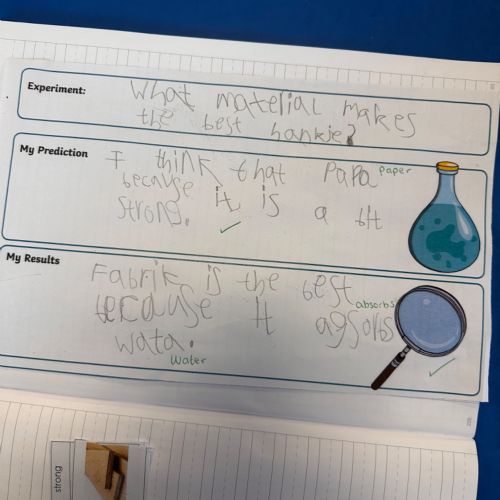 Experiment:
What material makes
the best hankie?
My Prediction
I think that PaPa paper
because it is a bit
strong.
My Results
Fabrik is the best
because It agsolbs absorbs
wata.
water
strong